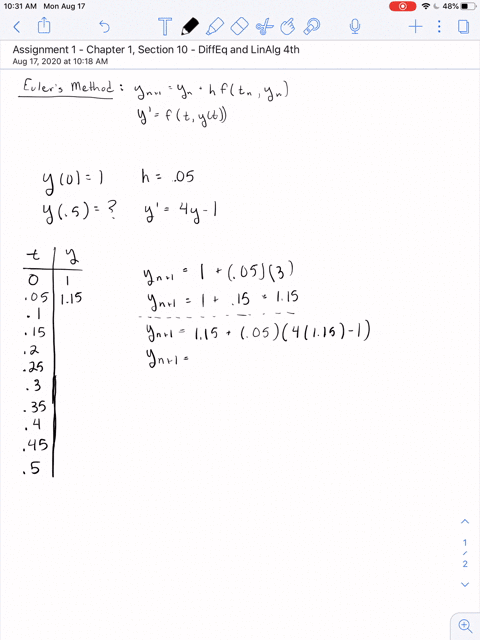 10:31 AM Mon Aug 17 48%
Assignment 1 - Chapter 1, Section 10 - DiffEq and LinAlg 4th
Aug 17, 2020 at 10:18 AM
Euler's Method : yn+1 = yn + h f(tn, yn)
y' = f(t, y(t))
y(0) = 1 h = .05
y(.5) = ? y' = 4y-1
t y
0 1
.05 1.15
.1
.15
.2
.25
.3
.35
.4
.45
.5
yn+1 = 1 + (.05)(3)
yn+1 = 1 + .15 = 1.15
yn+1 = 1.15 + (.05)(4(1.15)-1)
yn+1 =
1
/
2